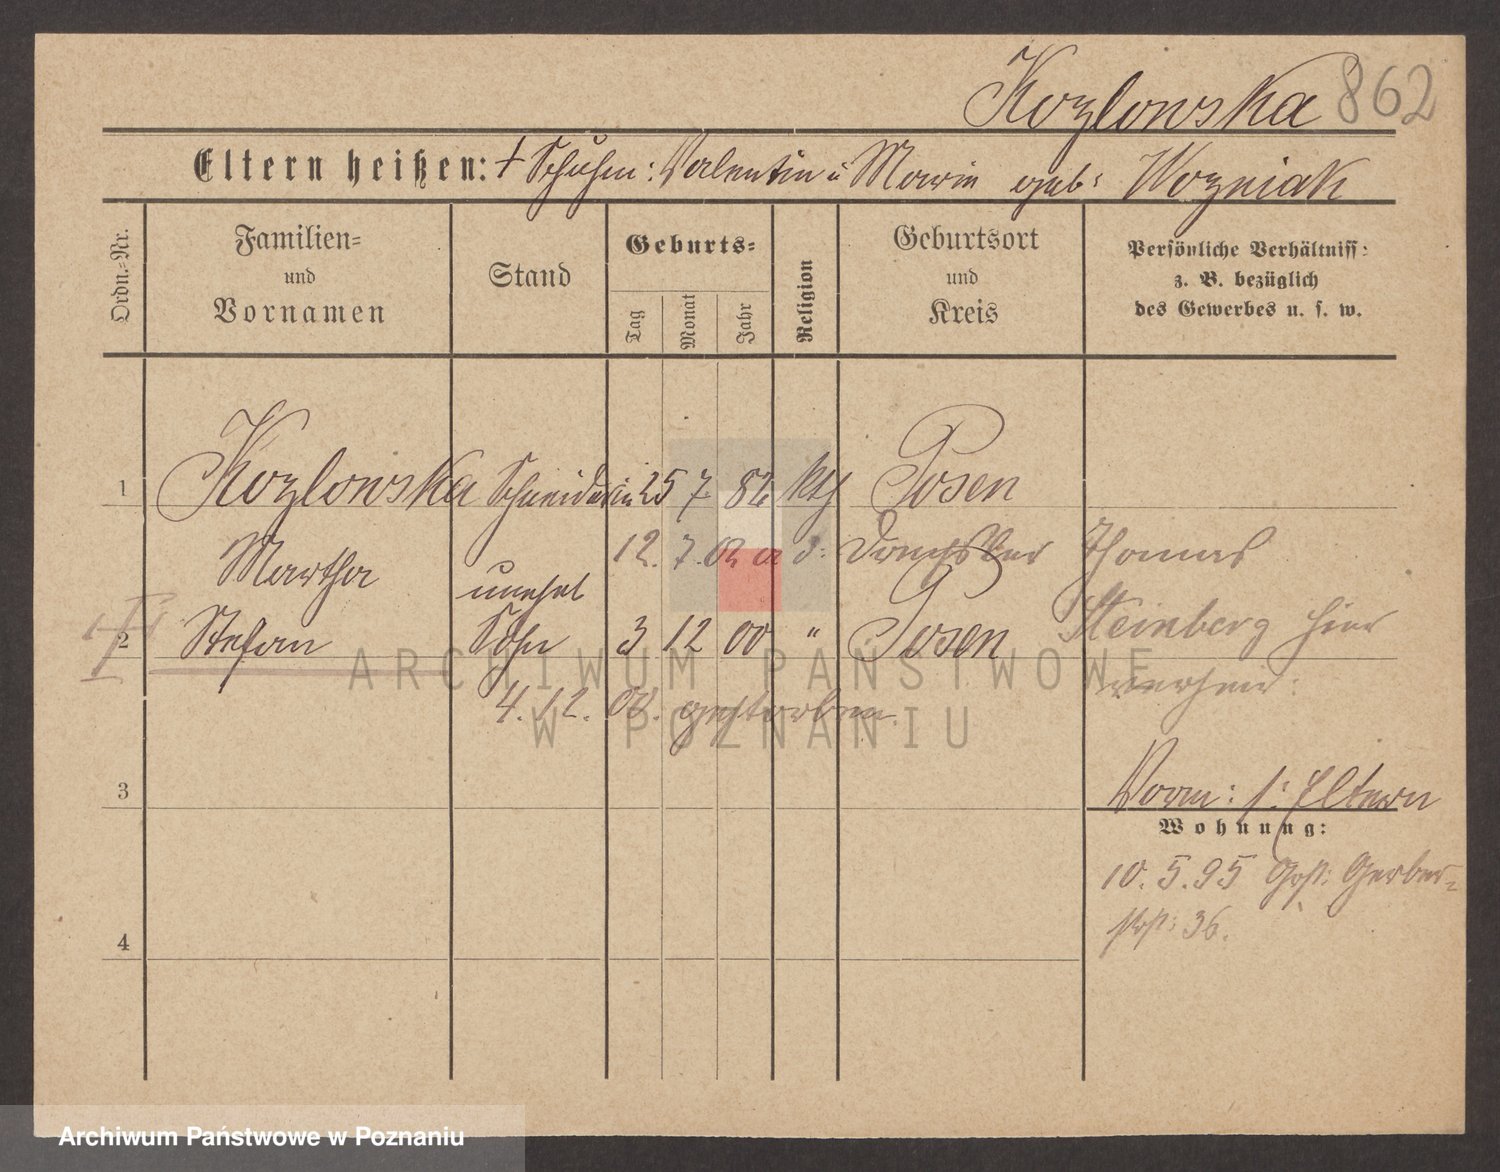 Kozlowska 862
Eltern heißen: † Schuhm: Valentin u Marie geb: Wozniak
Ordn.-Nr.
Familien-
und
Vornamen
Stand
Geburts-
Tag
Monat
Jahr
Religion
Geburtsort
und
Kreis
Persönliche Verhältniss:
z. B. bezüglich
des Gewerbes u. s. w.
1 Kozlowska Schneiderin 25 7 82 kth Posen
12. 7. 02 a d. Thomas
Martha unehel
2 Stefan Sohn 3 12 00 " Posen Steinberg hier
4. 12. 00. gestorben.
3 Vorm: s: Eltern
Wohnung:
10. 5. 95 Grß: Gerber-
str: 36.
4
ARCHIWUM PAŃSTWOWE
W POZNANIU
Archiwum Państwowe w Poznaniu